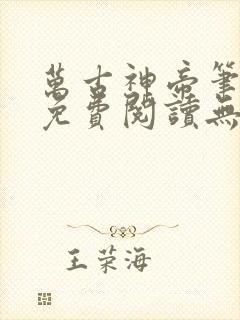 萬古神帝筆
免費閱讀無
王荣海